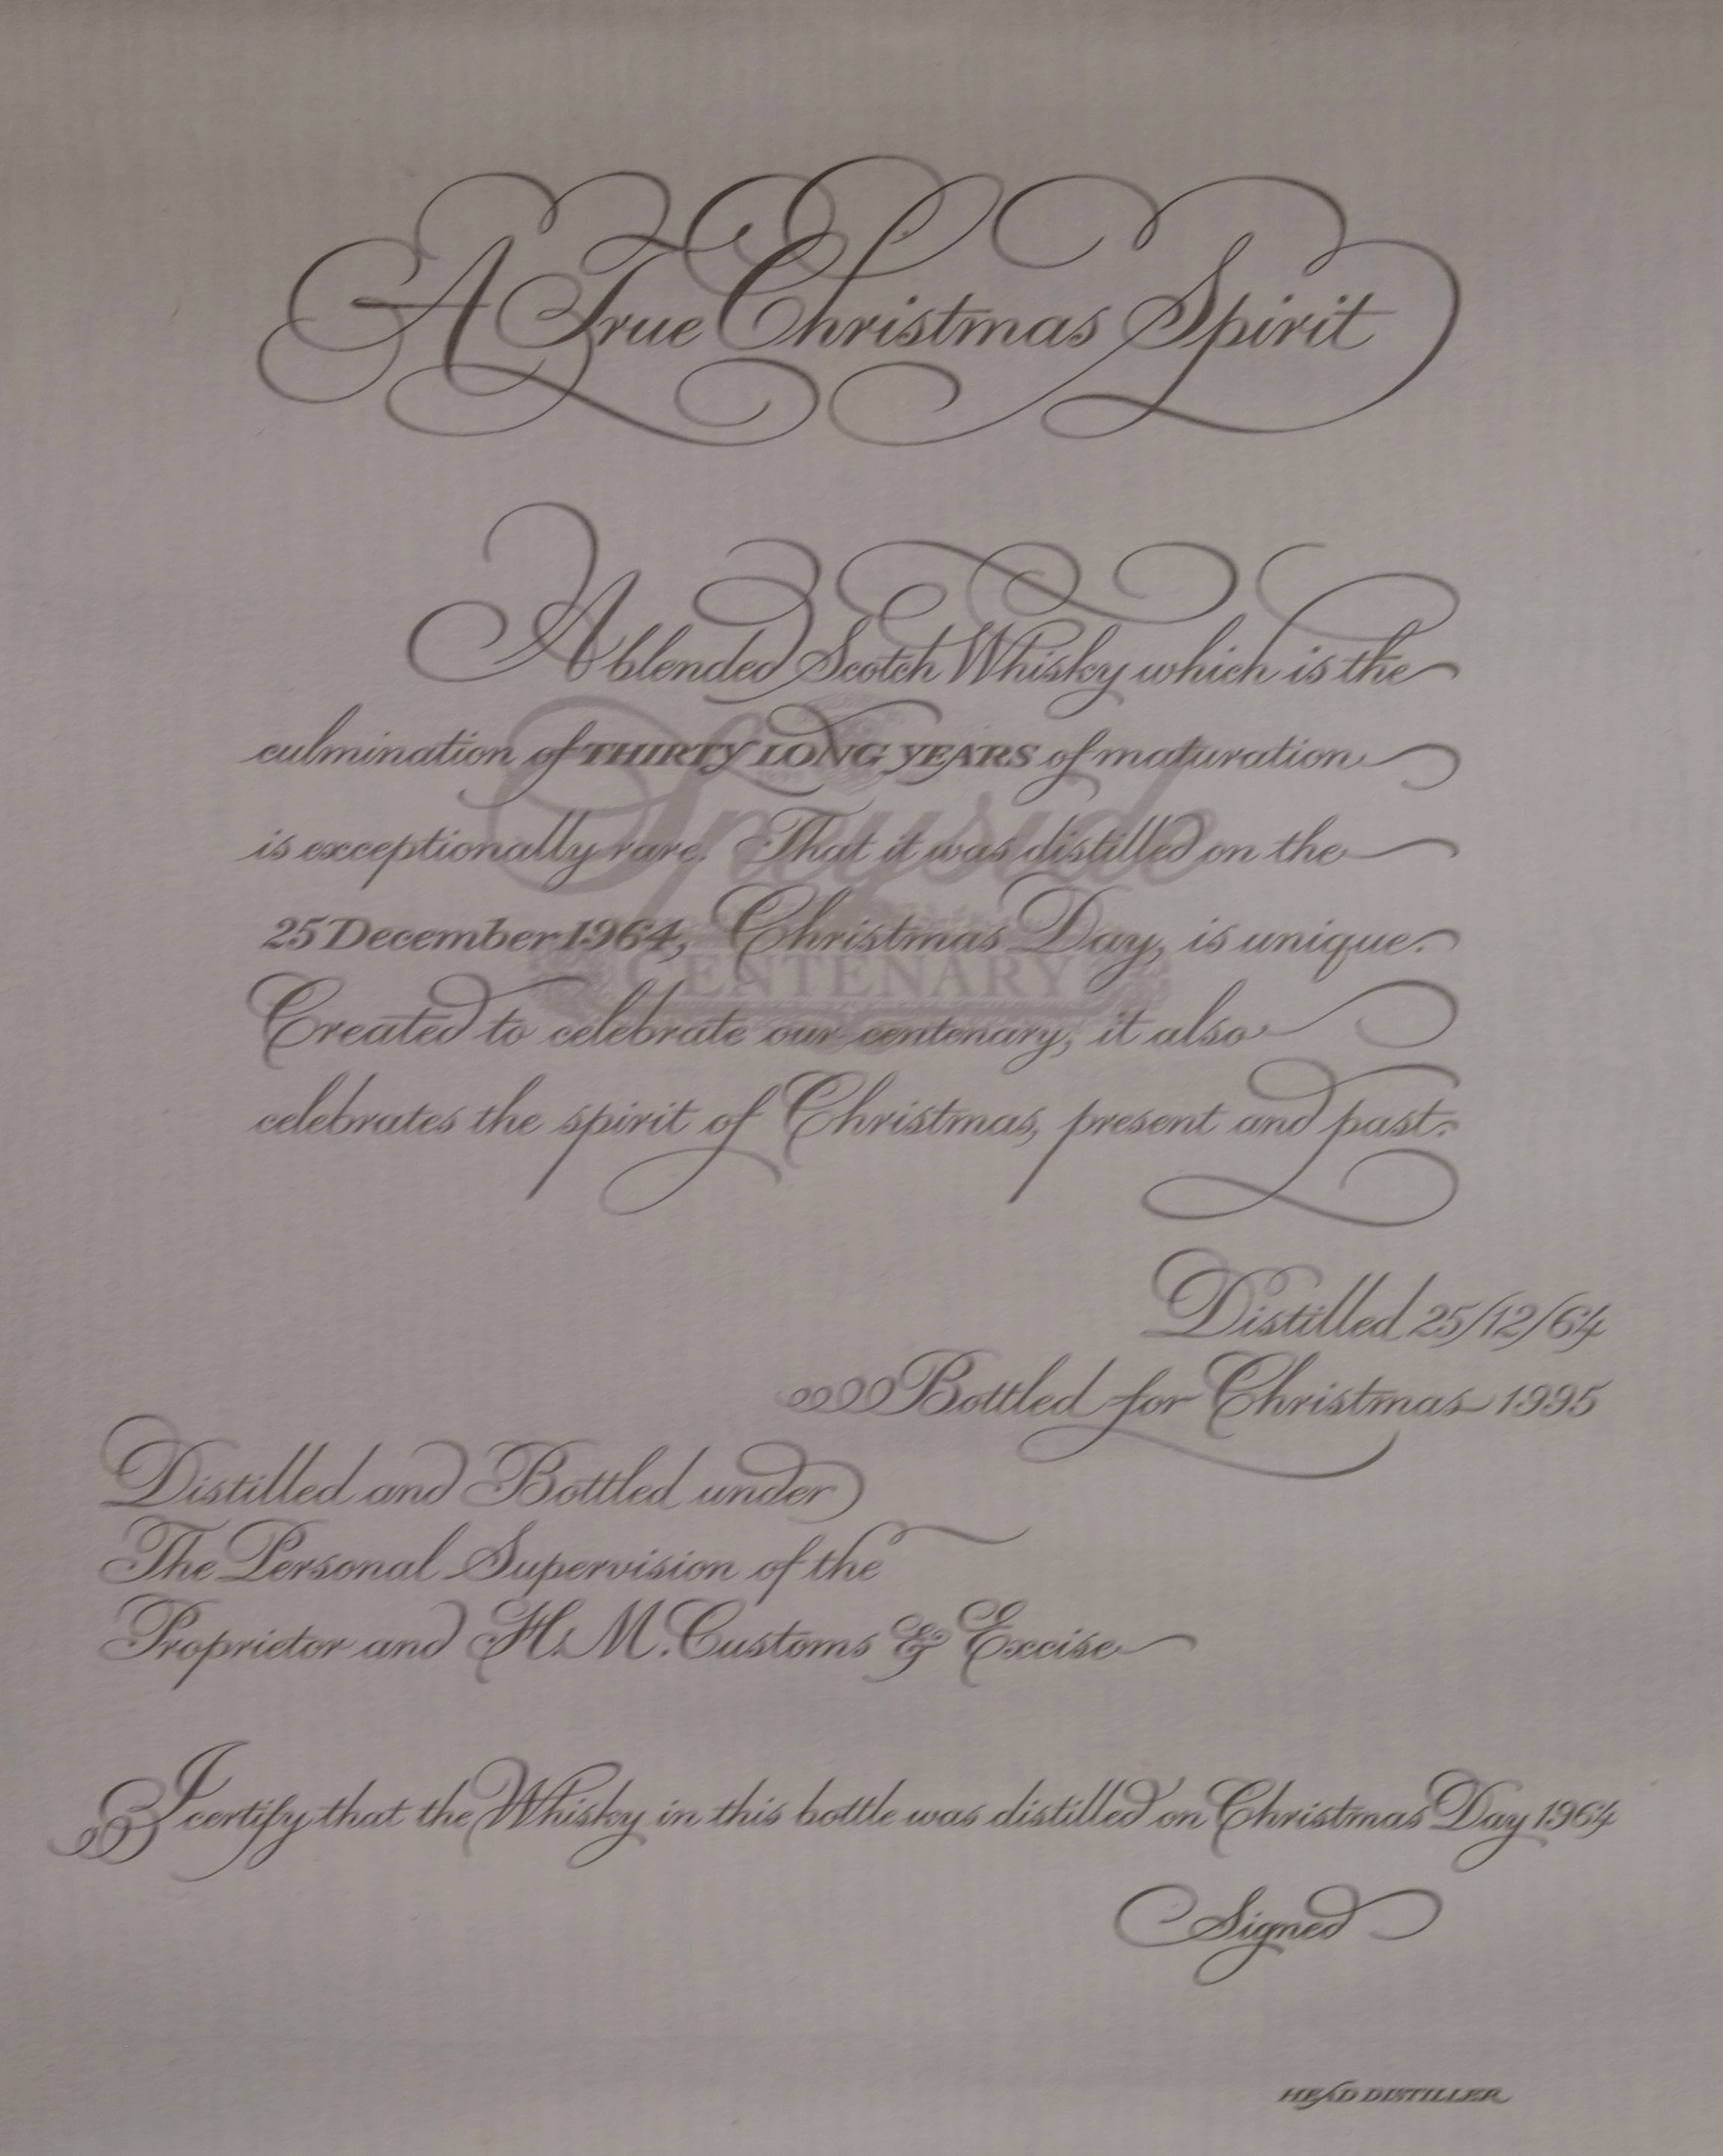 A True Christmas Spirit
A blended Scotch Whisky which is the
culmination of THIRTY LONG YEARS of maturation
is exceptionally rare. That it was distilled on the
25 December 1964, Christmas Day, is unique.
Created to celebrate our centenary, it also
celebrates the spirit of Christmas, present and past.
Speyside
CENTENARY
Distilled 25/12/64
Bottled for Christmas 1995
Distilled and Bottled under
The Personal Supervision of the
Proprietor and H.M. Customs & Excise
I certify that the Whisky in this bottle was distilled on Christmas Day 1964
Signed
HEAD DISTILLER